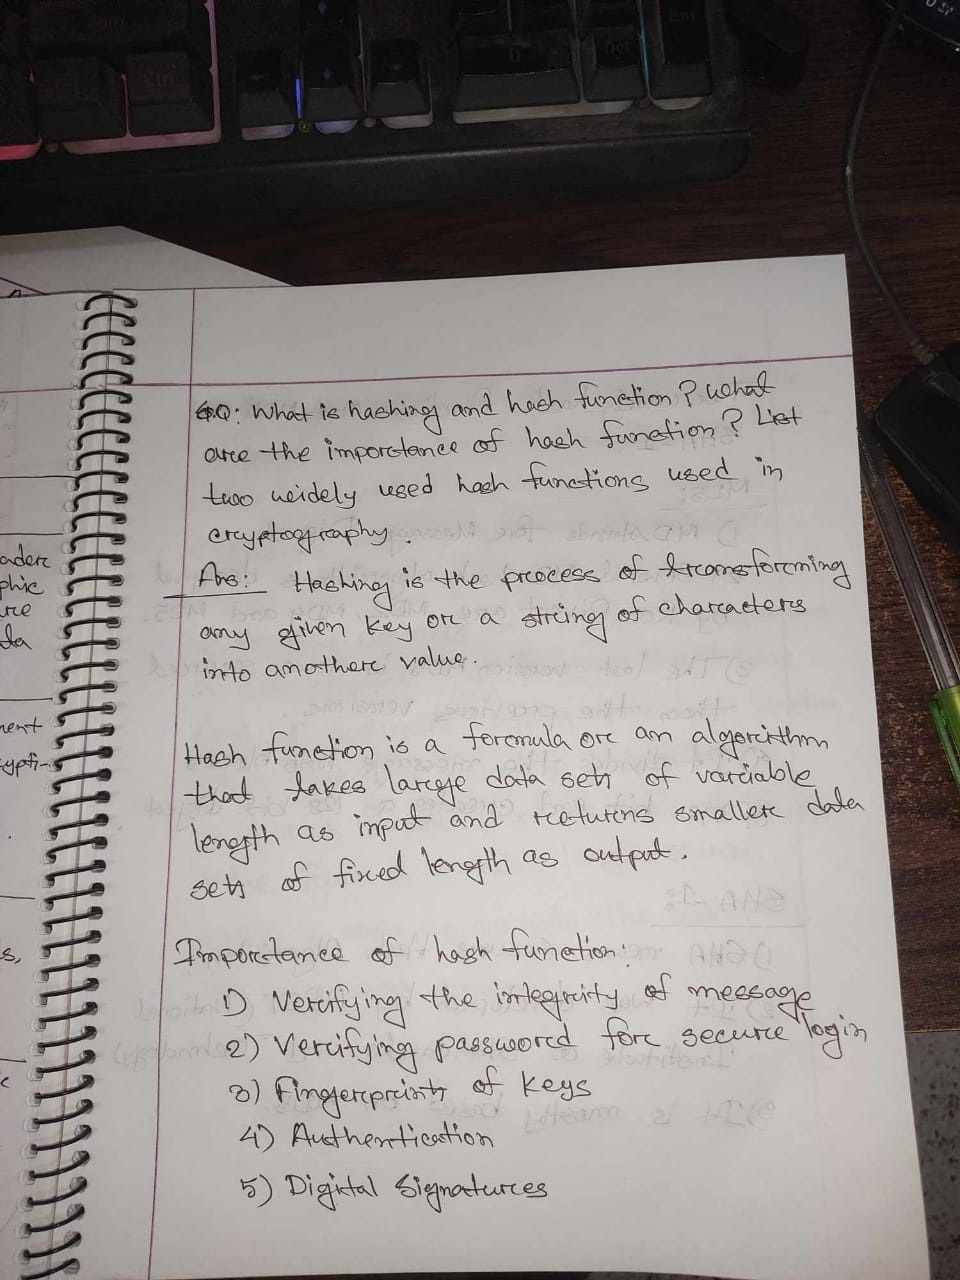 Q: What is hashing and hash function? What
are the importance of hash function? List
two widely used hash functions used in
cryptography.
Ans: Hashing is the process of transforming
any given key or a string of characters
into another value.
Hash function is a formula or an algorithm
that takes large data sets of variable
length as input and returns smaller data
sets of fixed length as output.
Importance of hash function:
1) Verifying the integrity of message
2) Verifying password for secure login
3) Fingerprints of keys
4) Authentication
5) Digital Signatures